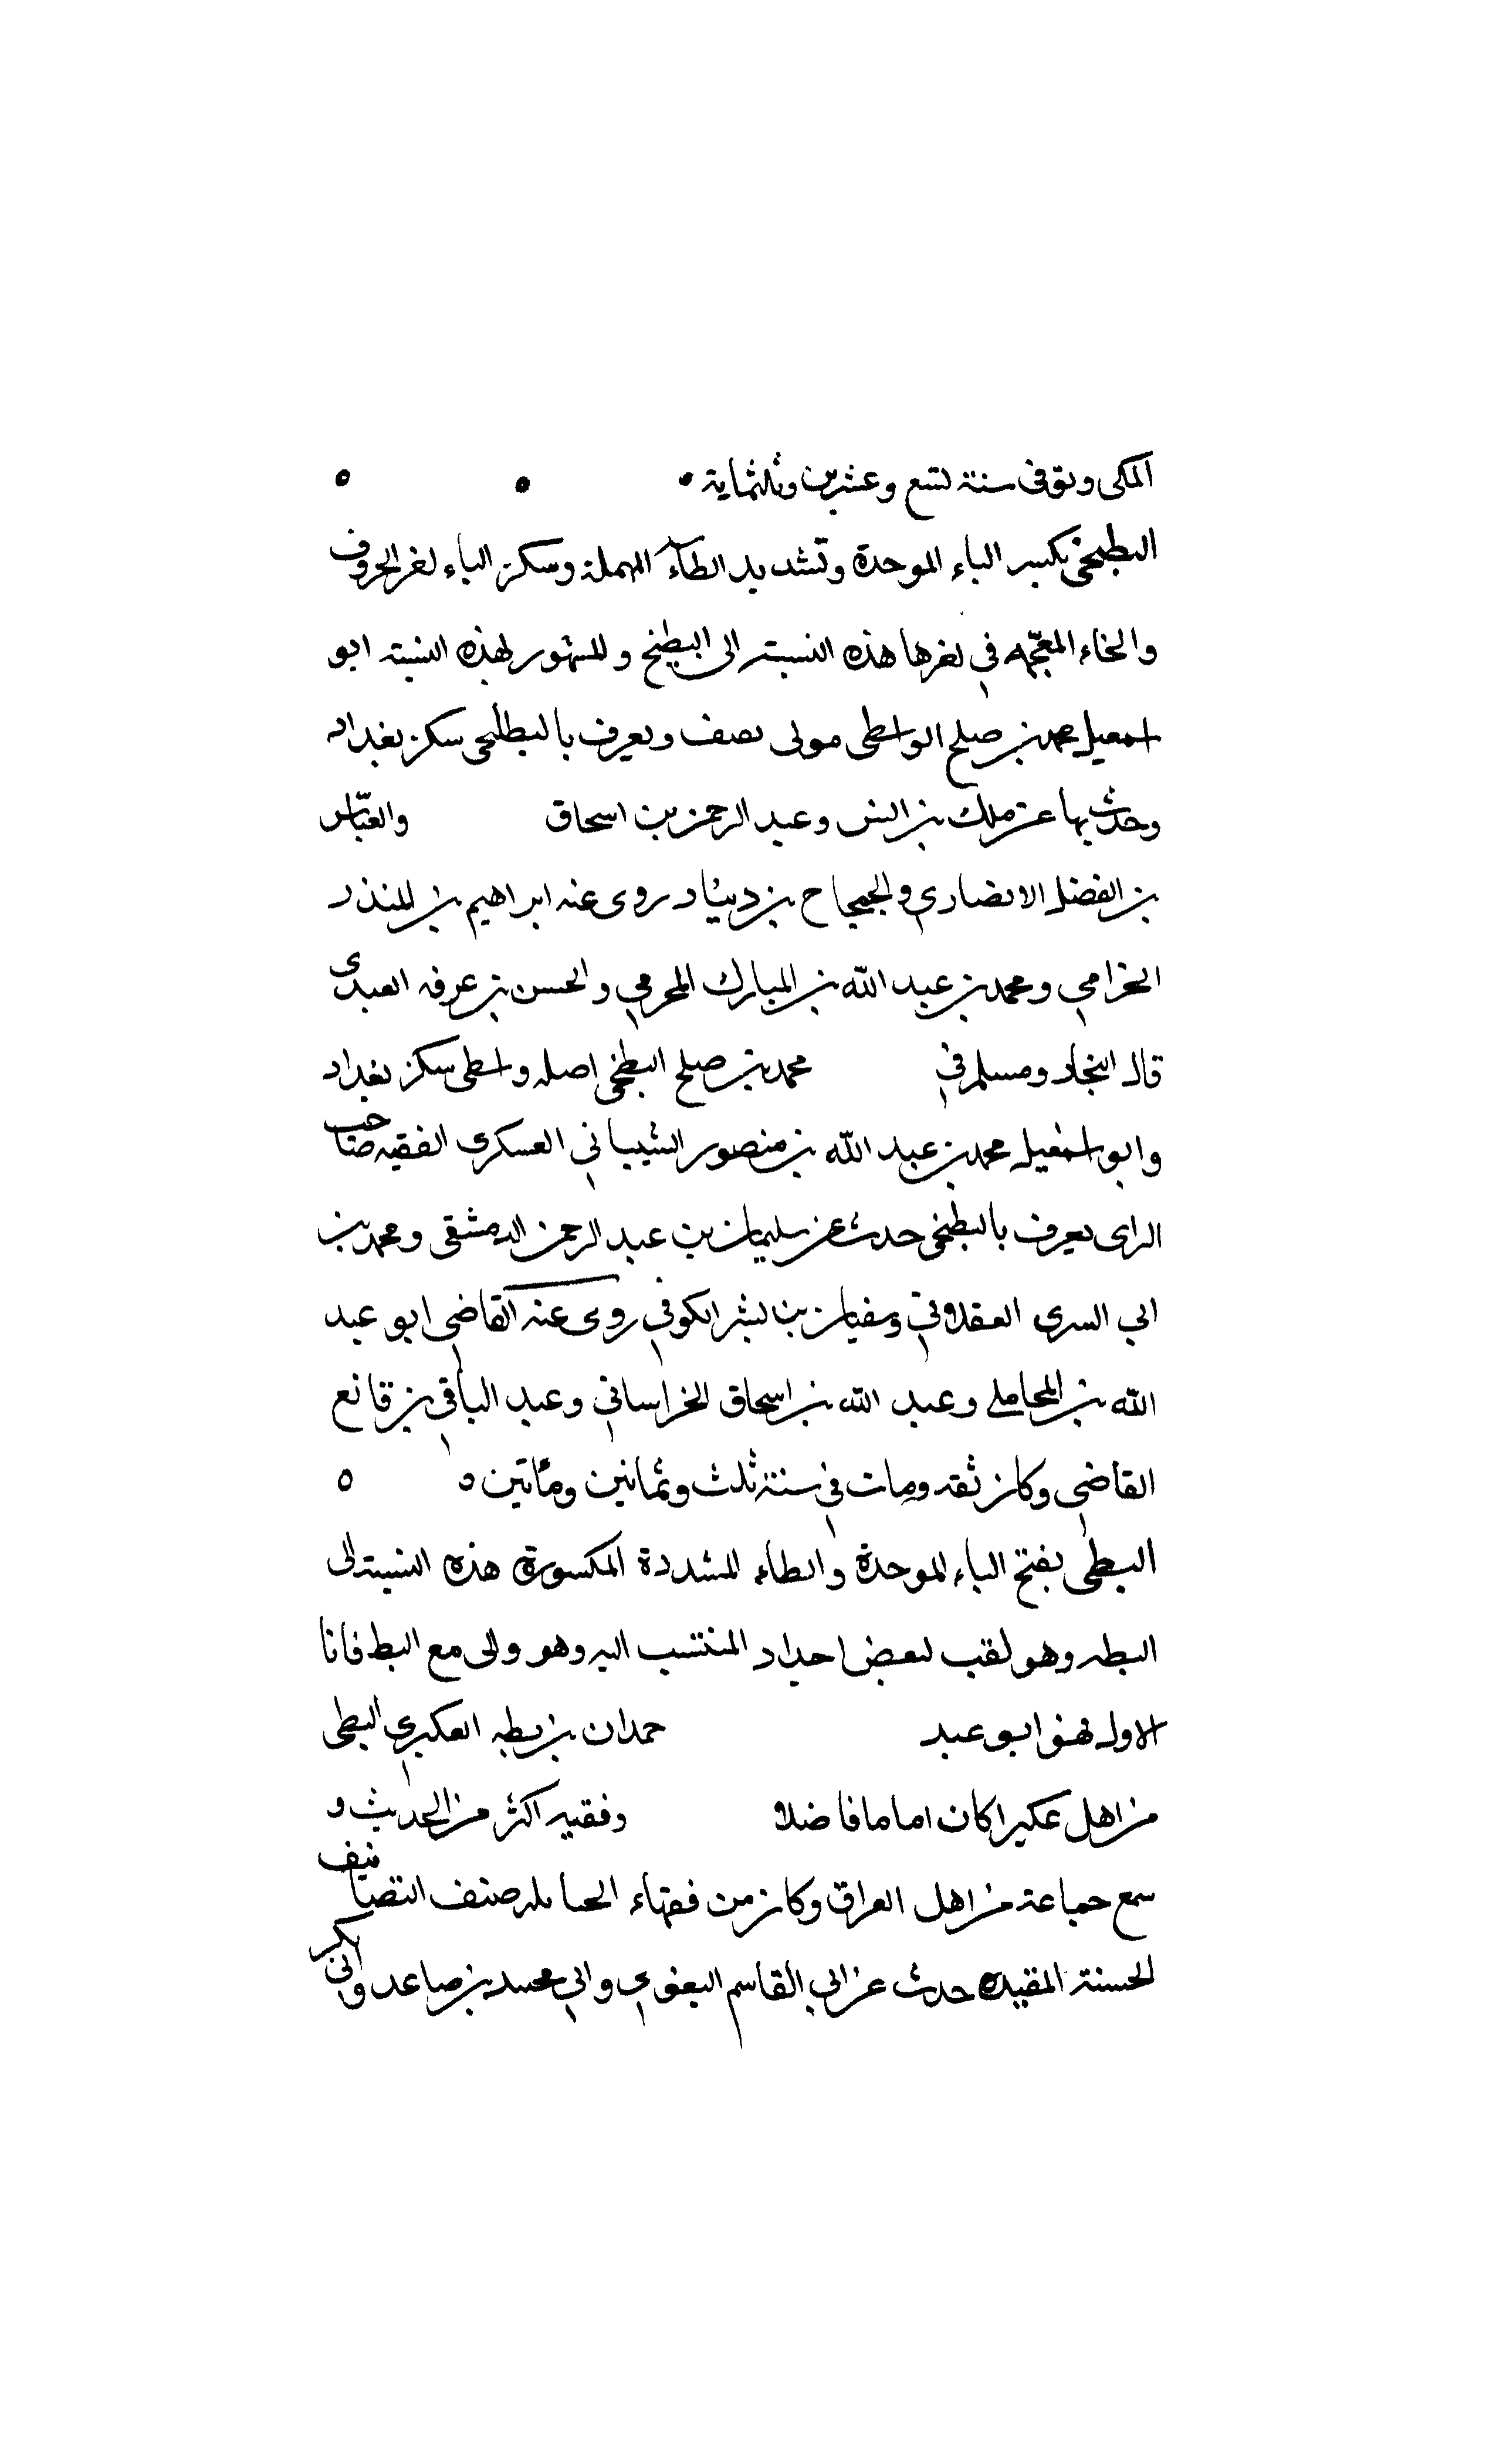 المكى وتوفى سنة تسع وعشرين وثلثماية
البطيخى بكسر الباء الموحدة وتشديد الطاء المهملة وسكن الياء اخر الحروف
والخاء المعجمه في اخرها هذه النسبة الى البطيخ والمشهور بهذه النسبة ابو
اسمعيل محمد بن صلح الواسطى مولى ثقيف ويعرف بالبطيخى سكن بغداد
وحدث بها عن ملك بن انس وعبد الرحمن بن اسحاق والعباس
بن الفضل الانصاري والحجاج بن دينار روى عنه ابراهيم بن المنذر
الحزامي ومحمد بن عبد الله بن المبارك المخرمي والحسن بن عرفه العبدى
قال البخارى ومسلم في محمد بن صلح البطيخى اصله واسطى سكن بغداد
وابو اسمعيل محمد بن عبد الله بن منصور الشيباني العسكرى الفقيه صاحب
الراى يعرف بالبطيخى حدث عن سليمان بن عبد الرحمن الدمشقى ومحمد بن
ابي السرى العسقلاني وسفيان بن بشر الكوفي روى عنه القاضى ابو عبد
الله بن المحاملي وعبد الله بن اسحاق الخراساني وعبد الباقي بن قانع
القاضي وكان ثقه ومات في سنة ثلث وثمانين ومائتين
البطى بفتح الباء الموحدة والطاء المشددة المكسورة هذه النسبة الى
البطه وهو لقب لبعض اجداد المنتسب اليه وهو والى مع البط فانا
الاول فهو ابو عبد حمدان بن بطه العكبري البطى
من اهل عكبرا كان اماما فاضلا وفقيه اكثر من الحديث و
سمع جماعة من اهل العراق وكان من فقهاء الحنابله صنف التصانيف
الحسنة المفيده حدث عن ابي القاسم البغوي وابي محمد بن صاعد وابى بكر